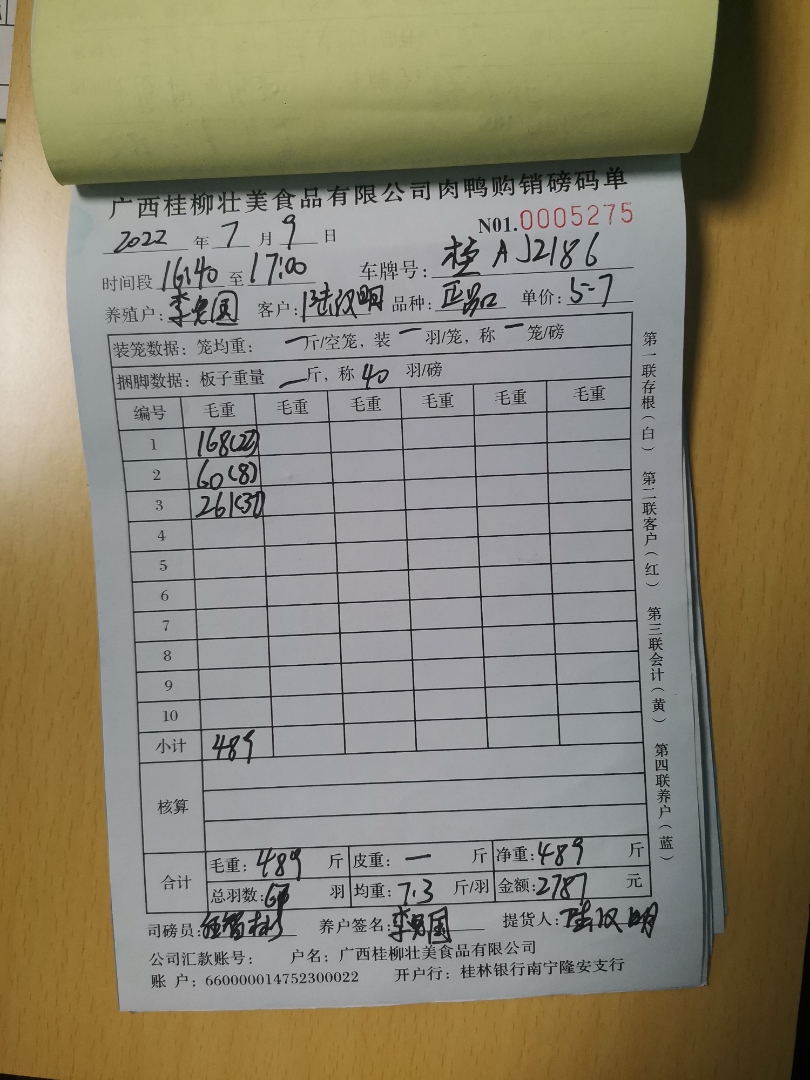 广西桂柳壮美食品有限公司肉鸭购销磅码单
2022 年 7 月 9 日 N01.0005275
时间段 16:40 至 17:00 车牌号: 桂 AJ2186
养殖户: 李 国 客户: 陆汉明 品种: 正品 单价: 5-7
装笼数据: 笼均重: 一 斤/空笼, 装 一 羽/笼, 称 一 笼/磅
捆脚数据: 板子重量 一 斤, 称 40 羽/磅
编号 毛重 毛重 毛重 毛重 毛重 毛重
1 168(22)
2 60(8)
3 261(37)
4
5
6
7
8
9
10
小计 489
核算
合计 毛重: 489 斤 皮重: 一 斤 净重: 489 斤
总羽数: 67 羽 均重: 7.3 斤/羽 金额: 2787 元
司磅员: 养户签名: 李 国 提货人: 陆汉明
公司汇款账号: 户名: 广西桂柳壮美食品有限公司
账 户: 660000014752300022 开户行: 桂林银行南宁隆安支行
第一联存根(白) 第二联客户(红) 第三联会计(黄) 第四联养户(蓝)